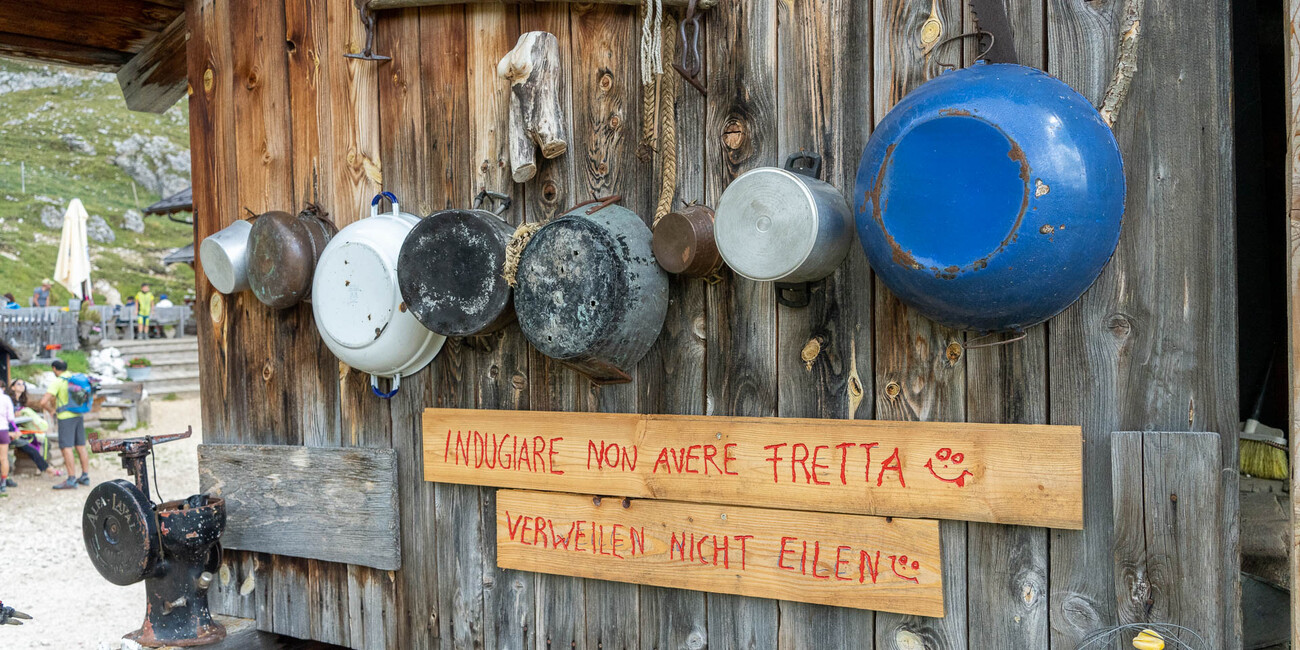 INDUGIARE NON AVERE FRETTA
VERWEILEN NICHT EILEN
ALFA-LAVAL